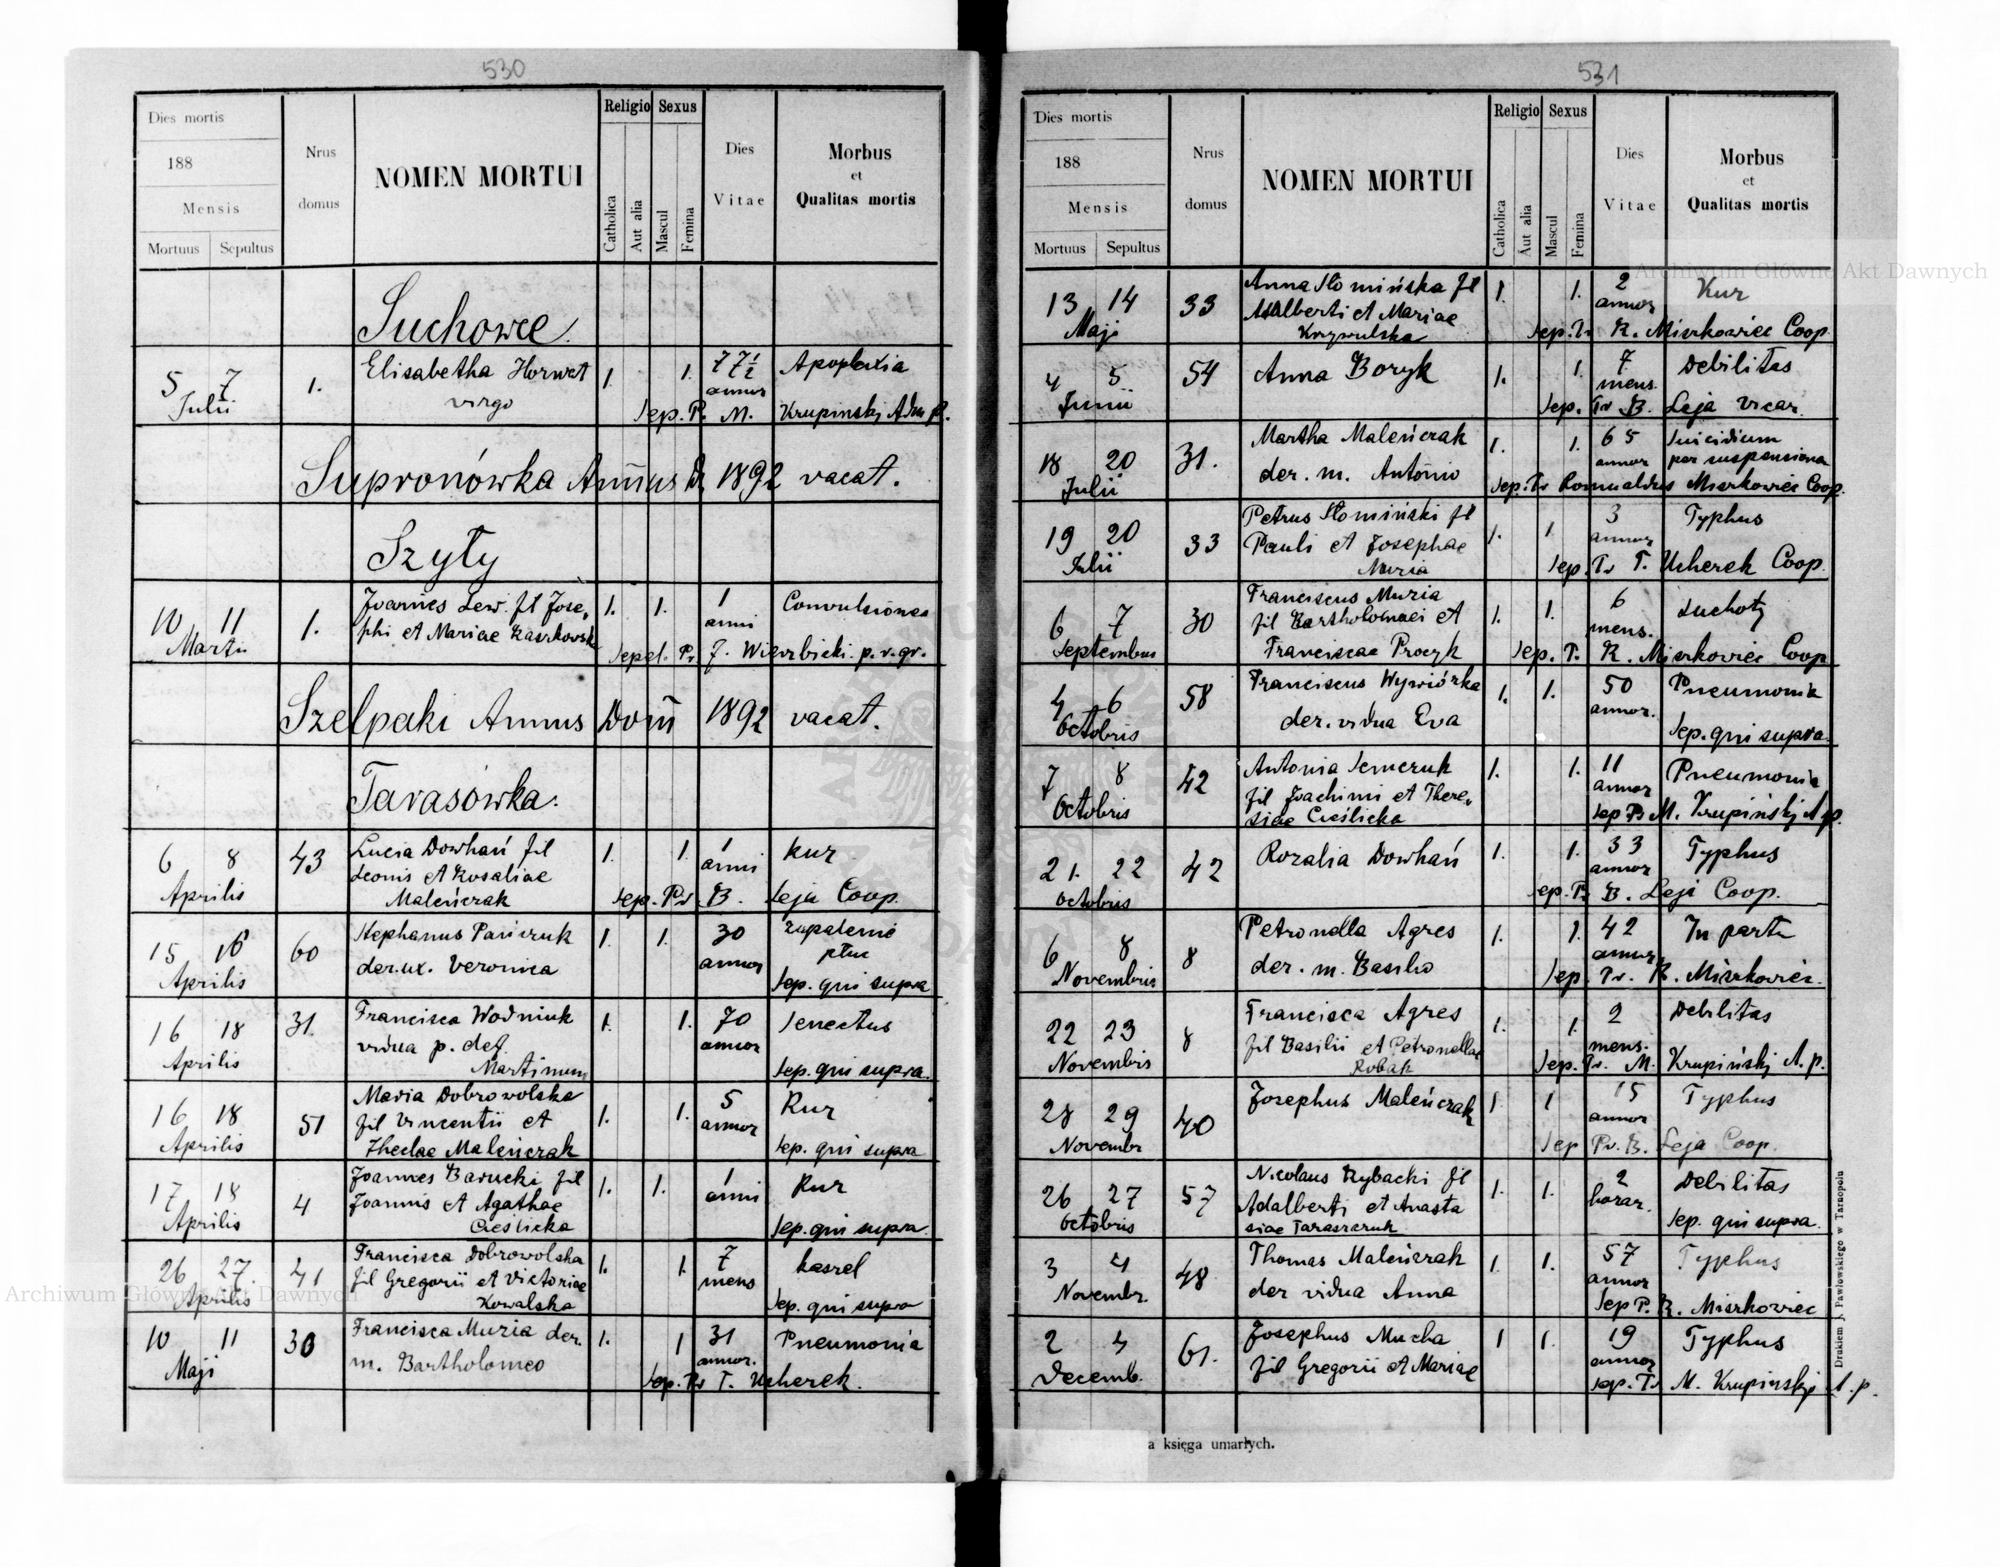 530
Dies mortis
188
Mensis
Mortuus Sepultus
Nrus domus
NOMEN MORTUI
Religio
Catholica
Aut alia
Sexus
Mascul
Femina
Dies Vitae
Morbus
et
Qualitas mortis
Suchowce.
5 7 Julii 1. Elisabetha Horwat 1. 1. 77½ annor Apoplexia
virgo
Sep. P. M. Krupinskj Adm p.
Supronówka Annus D. 1892 vacat.
Szyły
10 11 Martii 1. Joannes Lew. fil Jose, 1. 1. 1 anni Convulsiones
phi et Mariae Kaszkowsk
Sepel. Pr J. Wierzbicki p. v. gr.
Szelpaki Annus Domi 1892 vacat.
Tarasówka.
6 8 Aprilis 43 Lucia Dowhań fil 1. 1. 1 anni Kur
Leonis et Rosaliae
Maleńczak
Sep. Pr. B. Leja Coop.
15 16 Aprilis 60 Stephanus Pańczuk 1. 1. 30 annor zapalenie
płuc
der. ux. Veronica
Sep. qui supra
16 18 Aprilis 31. Francisca Wodniuk 1. 1. 70 annor Senectus
vidua p. def.
Martinum
Sep. qui supra.
16 18 Aprilis 51 Maria Dobrowolska 1. 1. 5 annor Kur
fil Vincentii et
Theclae Maleńczak
Sep. qui supra
17 18 Aprilis 4 Joannes Barucki fil 1. 1. 1 anni Kur
Joannis et Agathae
Cieślicka
Sep. qui supra.
26 27. Aprilis 41 Francisca Dobrowolska 1. 1. 7 mens kaszel
fil Gregorii et Victoriae
Kowalska
Sep. qui supra
10 11 Maji 30 Francisca Muzia der. 1. 1 31 annor. Pneumonia
m. Bartholomeo
Sep. Pr T. Ucherek.
531
Dies mortis
188
Mensis
Mortuus Sepultus
Nrus domus
NOMEN MORTUI
Religio
Catholica
Aut alia
Sexus
Mascul
Femina
Dies Vitae
Morbus
et
Qualitas mortis
13 14 Maji 33 Anna Słomińska fil 1. 1. 2 annor Kur
Adalberti et Mariae
Krzywulska
Sep. Pr R. Miszkowiec Coop.
4 5 Junii 54 Anna Boryk 1. 1. 7 mens. Debilitas
Sep. Pr B. Leja vicar.
18 20 Julii 31. Martha Maleńczak 1. 1. 65 annor Suicidium
per suspensionem
der. m. Antonio
Sep. Pr Romualdus Miszkowiec Coop.
19 20 Julii 33 Petrus Słomiński fil 1. 1 3 annor Typhus
Pauli et Josephae
Muzia
Sep. Pr T. Ucherek Coop.
6 7 Septembris 30 Franciscus Muzia 1. 1. 6 mens. Suchoty
fil Bartholomaei et
Franciscae Procyk
Sep. P. R. Miszkowiec Coop
4 6 Octobris 58 Franciscus Wywiórka 1. 1. 50 annor. Pneumonia
der. vidua Eva
Sep. qui supra
7 8 Octobris 42 Antonia Semczuk 1. 1. 11 annor Pneumonia
fil Joachimi et There,
siae Cieślicka
Sep Pr M. Krupińskj A p.
21. 22 Octobris 42 Rozalia Dowhań 1. 1. 33 annor Typhus
Sep. P. B. Leja Coop.
6 8 Novembris 8 Petronella Agres 1. 1. 42 annor In partu
der. m. Basilio
Sep. Pr. R. Miszkowiec.
22 23 Novembris 8 Francisca Agres 1. 1. 2 mens. Debilitas
fil Basilii et Petronellae
Robak
Sep. Pr. M. Krupińskj A. p.
28 29 Novembr 40 Josephus Maleńczak 1 1 15 annor Typhus
Sep Pr. B. Leja Coop.
26 27 Octobris 57 Nicolaus Rybacki fil 1. 1. 2 horar. Debilitas
Adalberti et Anasta
siae Taraszczuk
Sep. qui supra.
3 4 Novembr. 48 Thomas Maleńczak 1. 1. 57 annor Typhus
der vidua Anna
Sep P. R. Miszkowiec
2 4 Decemb. 61. Josephus Mucha 1 1. 19 annor Typhus
fil Gregorii et Mariae
Sep. Pr M. Krupinskj A. p.
a księga umarłych.
Drukiem J. Pawłowskiego w Tarnopolu
Archiwum Główne Akt Dawnych
Archiwum Główne Akt Dawnych